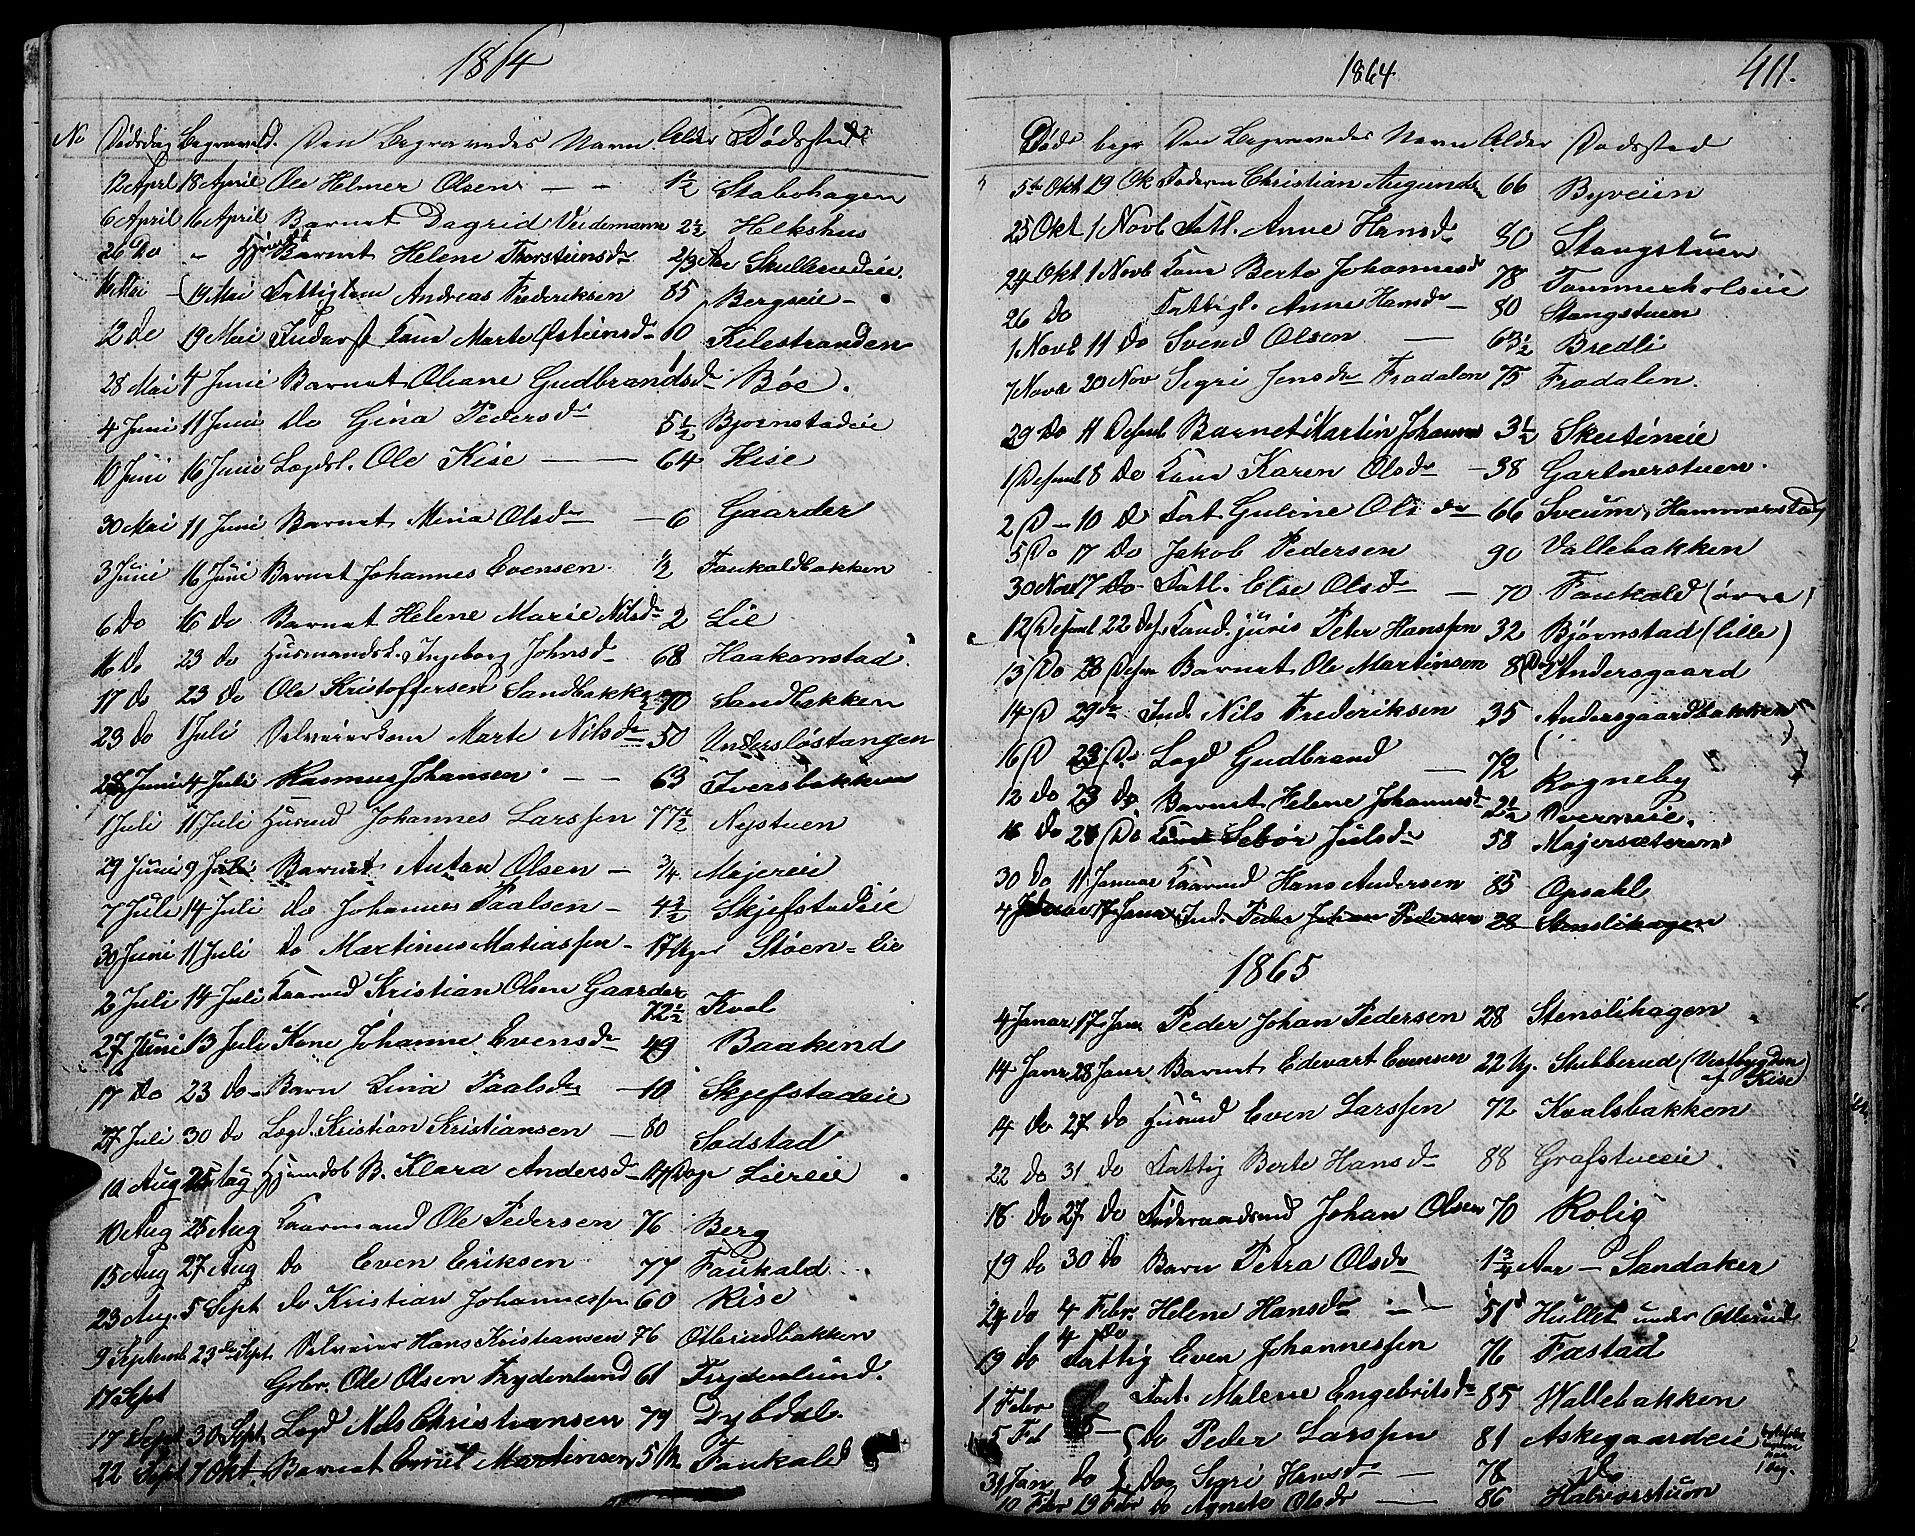 1864
No Dødsdag Begravelsd. Den Begravedes Navn Alder Dødssted
12 Aprl 18 April Ole Helmer Olsen — — 1½ Stabohagen
6 April 16 April Barnet Dagrid Vedemann 2½ Helkshus
26 Do " Barnet Helene Thorsteinsdr 2/3 Aar Skullerudeie
16 Mai 19 Mai Fattiglem Andreas Frederiksen 85 Bergseie
12 Do 19 Mai Inderst Kone Marte Østeinsdr 60 Kilestranden
28 Mai 4 Juni Barnet Oleane Gudbrandsdr Bøe.
4 Juni 11 Juni do Gina Pedersdr 5½ Bjørnstadeie
10 Juni 16 Juni Logdsl. Ole Kise — — 64 Kise
30 Mai 11 Juni Barnet Mina Olsdr — 6 Gaarder
3 Juni 16 Juni Barnet Johannes Evensen ½ Faukaldbakken
6 Do 16 do Barnet Helene Marie Nilsdr 2 Lie
16 do 23 do Husmandsk. Ingeborg Johnsd 68 Haakonstad
17 do 23 do Ole Kristoffersen Sandbakke 70 Sandbakken
23 do 1 Juli Selveierkone Marte Nilsdr 50 Undersløstangen
28 Juni 4 Juli Rasmus Johansen — — 63 Iversbakken
1 Juli 11 Juli Husmd Johannes Larssen 77½ Nystuen
29 Juni 9 Juli Barnet Anton Olsen — ¾ Majereie
7 Juli 14 Juli do Johannes Paalsen — 4½ Skjefstadeie
30 Juni 11 Juli do Martinus Matiassen — 17 Uger Støen-eie
2 Juli 14 Juli Kaarmd Kristian Olsen Gaarder 72½ Kval
27 Juni 13 Juli Kone Johanne Evensdr 49 Baakind
17 Do 23 do Barn Lina Paalsdr — 10 Skjefstadeie
27 Juli 30 do Logd. Kristian Kristiansen — 80 Sodstad
10 Aug 25 Aug B. Klara Andersdr 14 Dage Liereie
10 Aug 25 Aug Kaarmand Ole Pedersen 76 Berg
15 Aug 27 Aug do Even Eriksen 77 Faukald
23 Aug. 5 Sept do Kristian Johannessen 60 Kise
9 Septemb 23de Sept Selveier Hans Kristiansen 76 Otterudbakken
17 Sept Grbr. Ole Olsen Frydenlund 61 Frydenlund.
17 Sept 30 Sept Logd Nils Christiansen 79 Dybdal
22 Sept 7 Okt. Barnet Emiel Martinsen 5 M Faukald
1864 411.
Døds begr Den Begravedes Navn Alder Dødssted
5te Okt 19 Ok Christian Augunds 66 Byveien
25 Okt 1 Novb Fatl. Anne Hansdr 80 Stangstuen
24 Okt 1 Novb Kone Berte Johannesdr 78 Tømmerholseie
26 do Fattigl. Anne Hansdr 80 Stangstuen
1 Novb 11 Do Svend Olsen — 63½ Bredli
7 Novb 20 Nov Sigri Jensdr Frodalen 75 Frodalen.
29 Do 11 Desemb Barnet Martin Johannes 3½ Skutineie
1 Desemb 8 Do Kone Karen Olsdr — 38 Gartnerstuen.
2 D — 10 D Fat Guline Olsdr 66 Sveum, Hammerstad
5 Do 17 Do Jakob Pedersen 90 Vallebakken
30 Nov 17 Do Fatl. Else Olsdr — 70 Faukald (øvre)
12 Desemb 22 Des. Kand. juris Peter Hanssen 32 Bjørnstad (lille)
13 Do 28 Desm Barnet Ole Martinsen 8 Dage Andersgaard
14 D 29de Ind. Nils Frederiksen 35 Andersgaardbakken
16 D 23 Do Logd Gudbrand — 72 Rogneby
12 do 23 do Barnet Helene Johannesdr 2½ Overneie.
16 do 28 Do Kone Sebør Julsdr 58 Majersæteren
30 Do 11 Januar Kaarmd Hans Andersen 85 Opsahl
4 Januar 17 Janu Ind. Peder Johan Pedersen 28 Stenslihagen
1865
4 Januar 17 Jan Peder Johan Pedersen 28 Stenslihagen
14 Janr 28 Janr Barnet Edevart Evensen 22 U. Stubberud (Vestbygden af Kise)
14 do 27 do Husmd Even Larssen 72 Kvalsbakken
22 do 31 do Fattig Berte Hansdr 88 Grafstueeie
18 do 27 do Føderaadsmd Johan Olsen 70 Rolig
19 do 30 do Barn Petra Olsdr 1¾ Aar — Sandaker
24 do 4 Febr. Helene Hansdr — 51 Hullet under Otterud
19 do 4 Do Fattig Even Johannessen 76 Fæstad
1 Febr Fat. Malene Engebritsdr 85 Wallebakken
5 Feb — do Peder Larssen 81 Askegaardeie
31 Jan do do Sigri Hansdr — 78 Do
10 Febr 19 Febr do Agnete Olsdr — 86 Halvorstuen